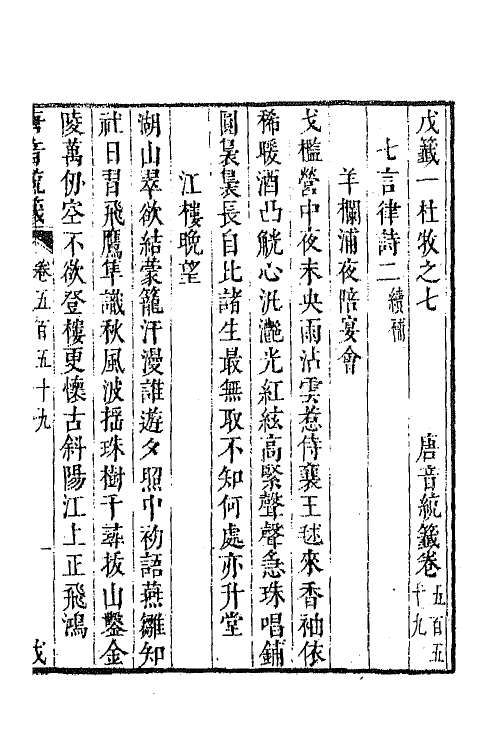 戊籤一杜牧之七　唐音統籤卷五百五十九
七言律詩二續補
羊欄浦夜陪宴會
戈檻營中夜未央雨沾雲惹侍襄王毬來香袖依
稀暖酒凸觥心汎灩光紅絃高緊聲聲急珠唱鋪
圓裊裊長自比諸生最無取不知何處亦升堂
江樓晚望
湖山翠欲結蒙籠汗漫誰遊夕照中初語燕雛知
社日習飛鷹隼識秋風波揺珠樹千尋拔山鑿金
陵萬仞空不欲登樓更懷古斜陽江上正飛鴻
唐音統籤 卷五百五十九 一 戊